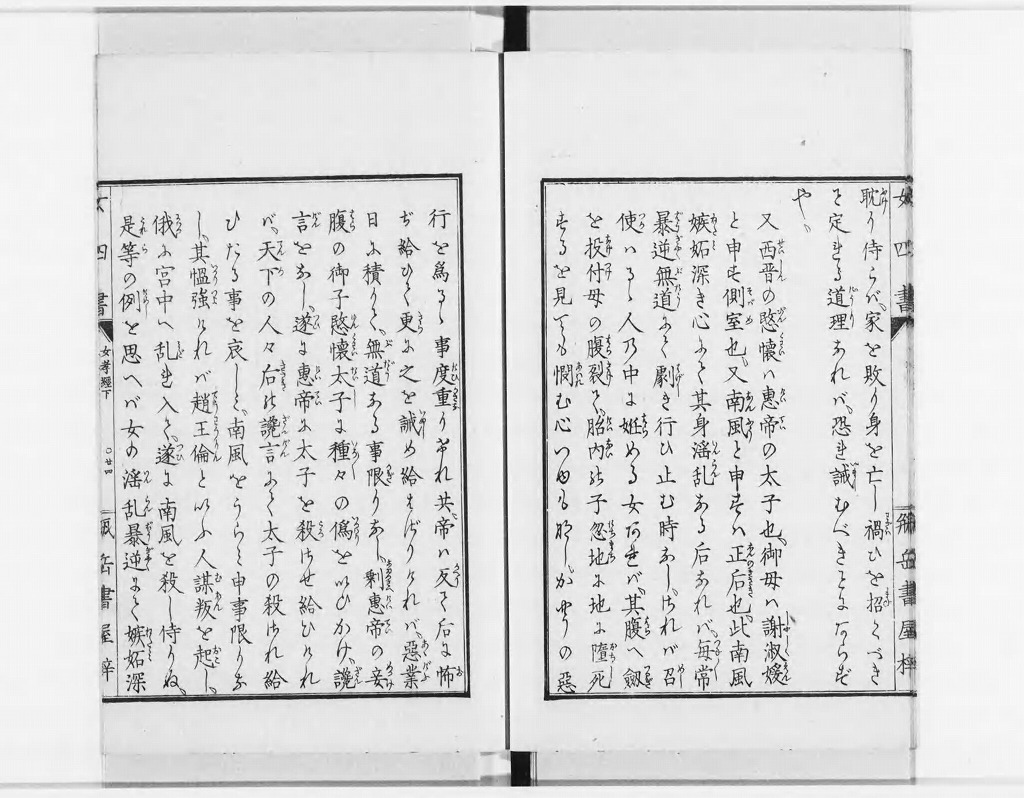 耻り侍らば、家を敗り身を亡し禍ひを招くべき
を定まる道理あれバ、恐れ誡むべきことにあらず
や、
又西晋の愍懐ハ恵帝の太子也、御母ハ謝淑媛
と申す側室也、又南風と申すハ正后也、此南風
嫉妬深き心にて其身淫乱ある后なれバ、毎常
暴逆無道にて劇き行ひ止む時なし、されバ召
使ハるゝ人乃中に姙める女あれバ、其腹へ劔
を投付母の腹裂て、胎内の子忽地に地に墮死
するを見ても憫む心つゆも那し、かやうの悪
女四書
弼岳書屋梓
行を為るゝ事度重りぬれ共帝ハ反て后に怖
ぢ給ひて更に之を誡め給はざりけれバ、悪業
日に積りて、無道ある事限りなし、剰恵帝の妾
腹の御子愍懐太子に種々の偽をいひかけ、讒
言をなし、遂に恵帝に太子を殺させ給ひけれ
バ、天下の人々右の讒言にて太子の殺され給
ひたる事を哀しミ、南風をうらミ申事限りな
し、其慍強けれバ趙王倫といふ人謀叛を起し、
俄に宮中へ乱れ入て、遂に南風を殺し侍りぬ、
是等の例を思へバ女の淫乱暴逆にて嫉妬深
女四書
女孝經下
○廿四
弼岳書屋梓